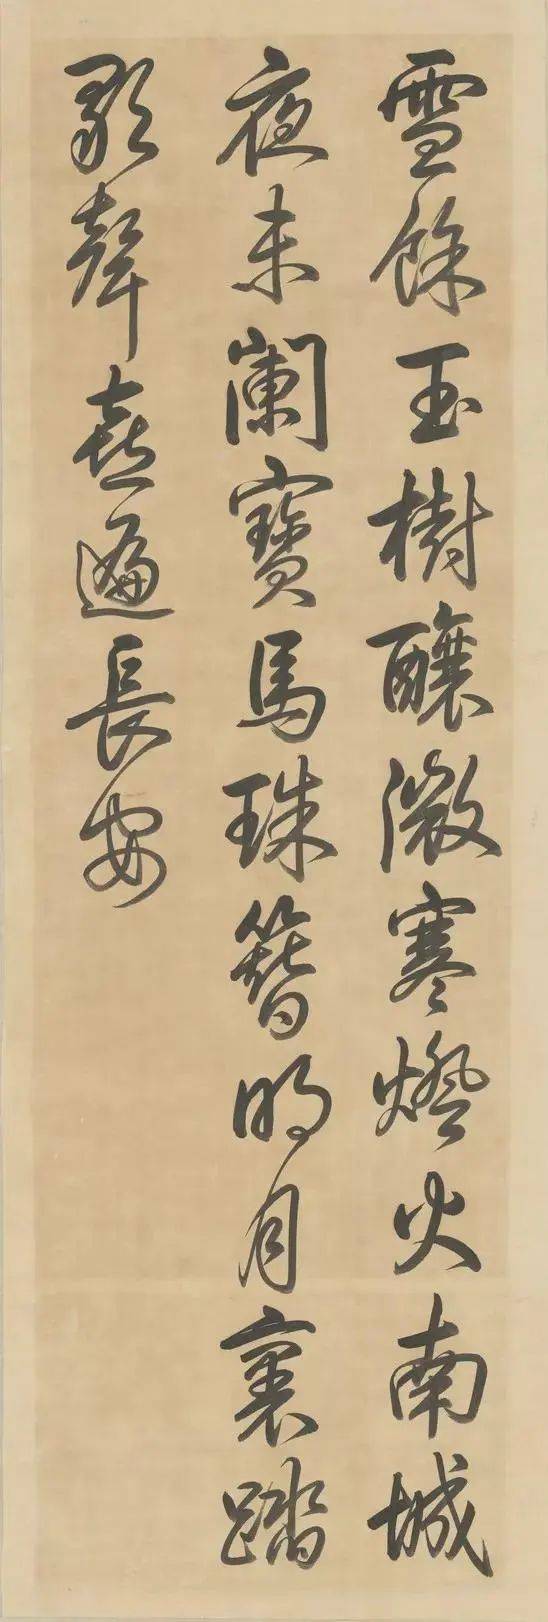 雪餘玉樹釀微寒燈火南城
夜未闌寶馬珠簪明月裏踏
歌聲喜遍長安